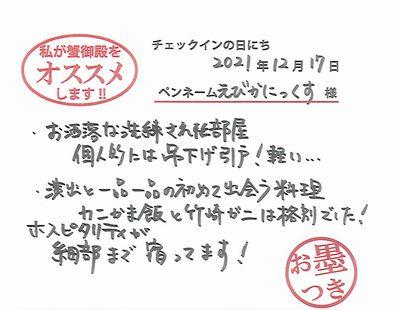 私が蟹御殿を
オススメ
します!!
チェックインの日にち
2021年12月17日
ペンネームえびかにっくす 様
・お洒落な洗練され在部屋
個人的には吊下げ引戸!軽い…
・演出と一品一品の初めて出会う料理
カニかま飯と竹崎がニは格別でした!
ホスピタリティが
細部まで宿ってます!
お墨
つき